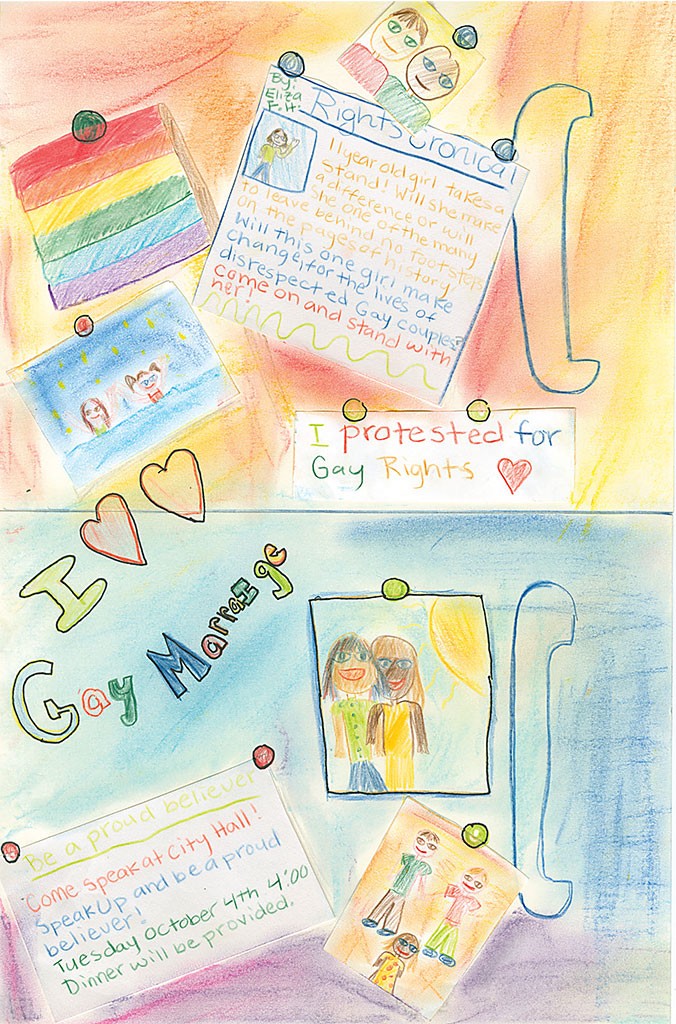 By:
Eliza
F.H.
Rights Cronical
11 year old girl takes a
stand! Will she make
a difference or will
she one of the many
to leave behind no footsteps
on the pages of history
Will this one girl make
change, for the lives of
disrespected Gay couples?
come on and stand with
her!
I protested for
Gay Rights
I
Gay Marraige
Be a proud believer
Come speak at City Hall!
SpeakUp and be a proud
believer!
Tuesday October 4th 4:00
Dinner will be provided.